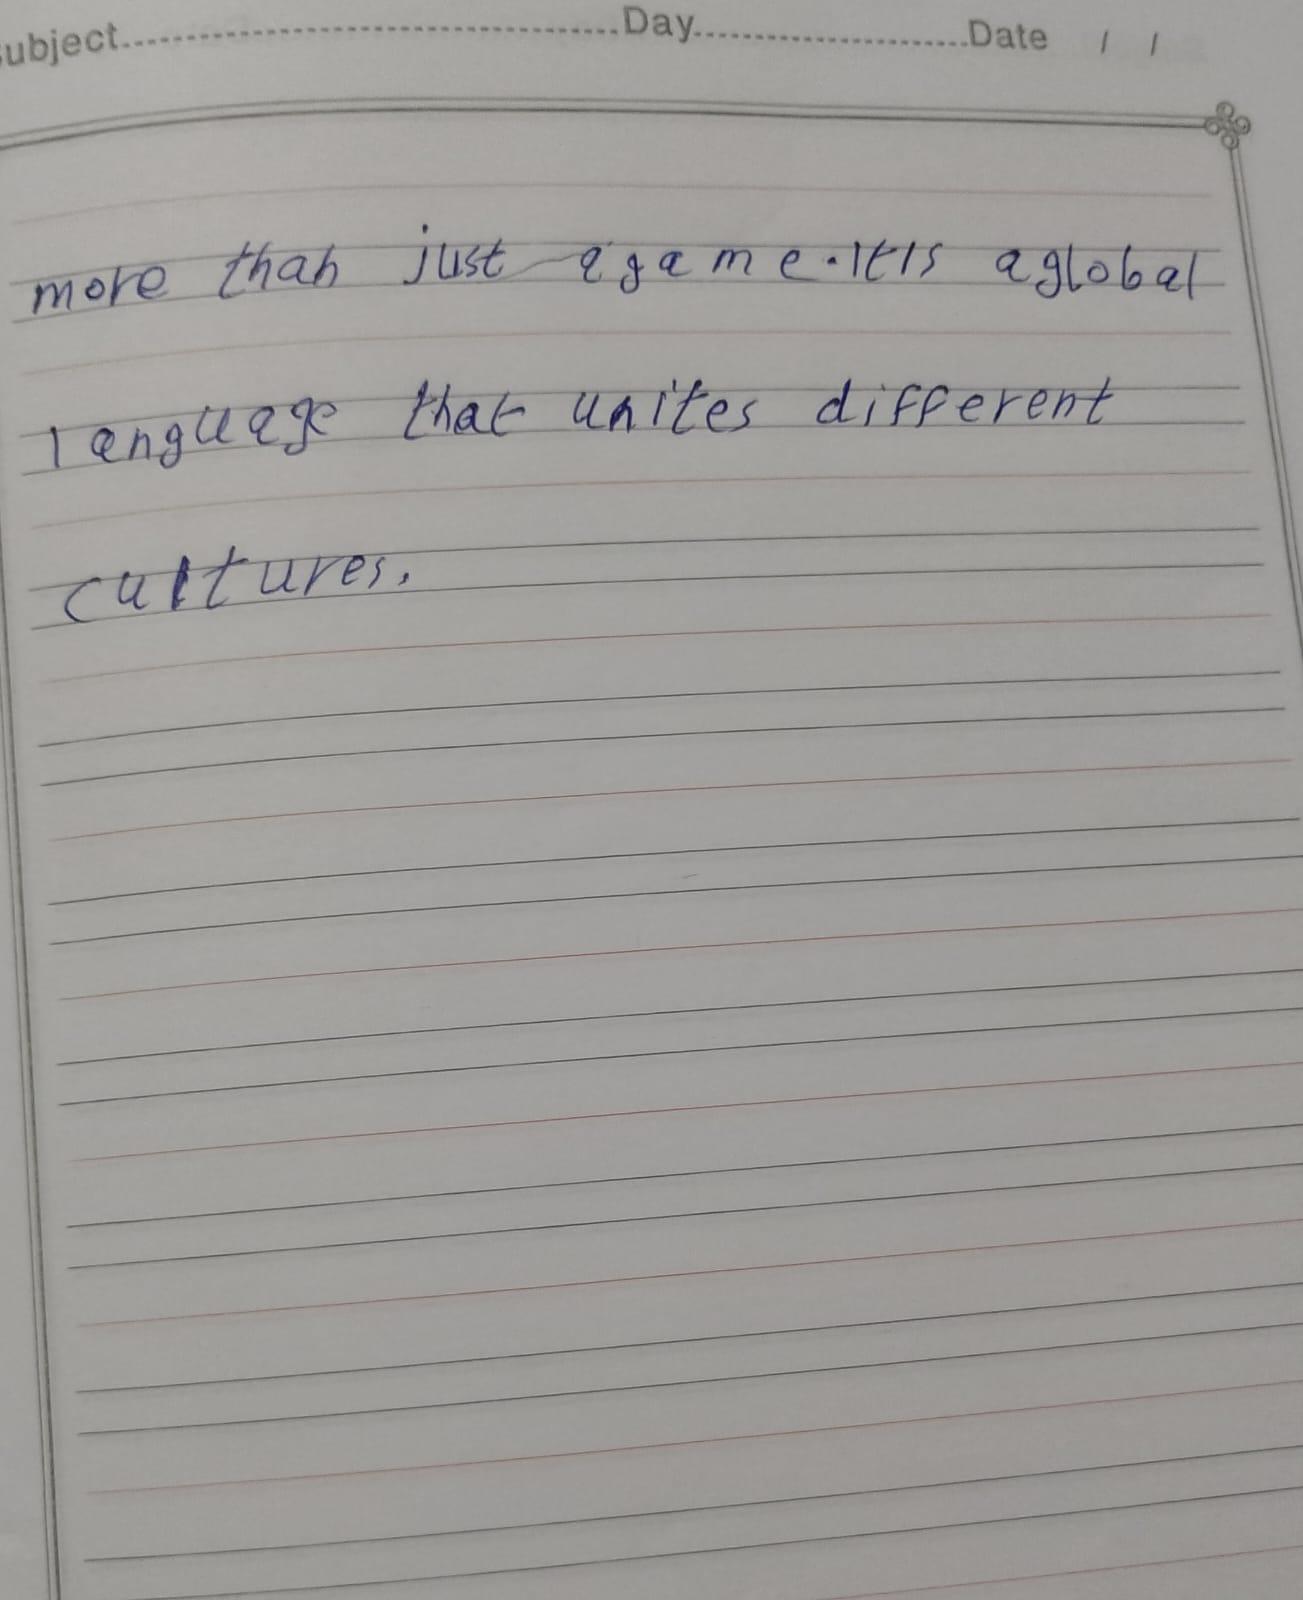 Subject........................................Day......................Date / /
more than just a game. It is a global
language that unites different
cultures.